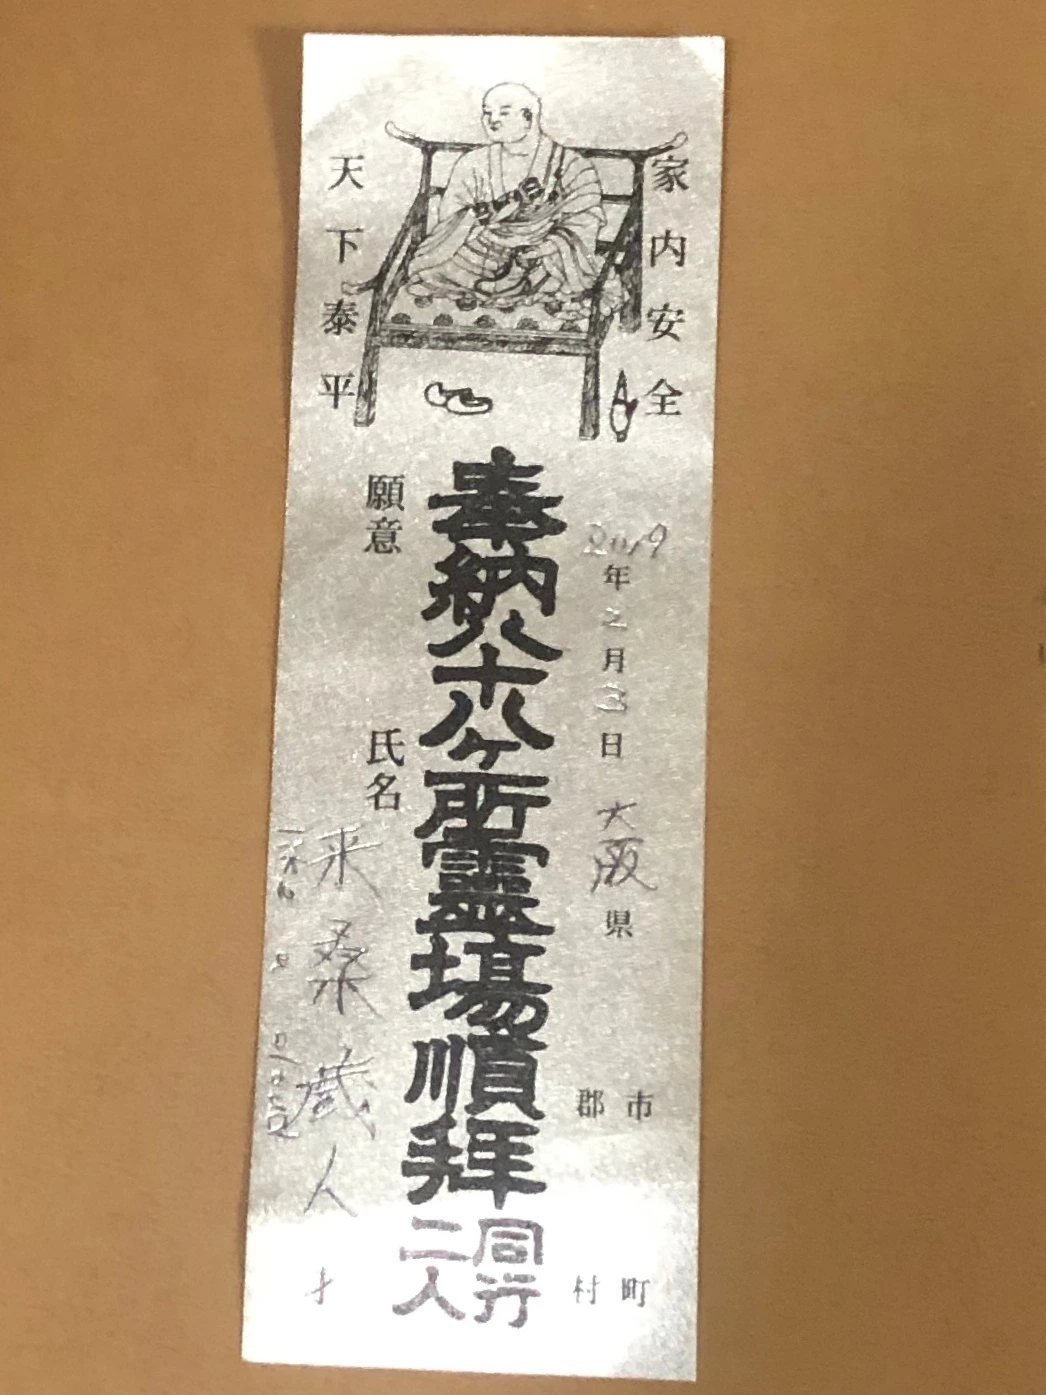 家内安全
2019年2月3日 大阪県
郡 市
村 町
奉納八十八ケ所霊場順拝
同行
二人
天下泰平
願意
氏名
桑蔵人
才